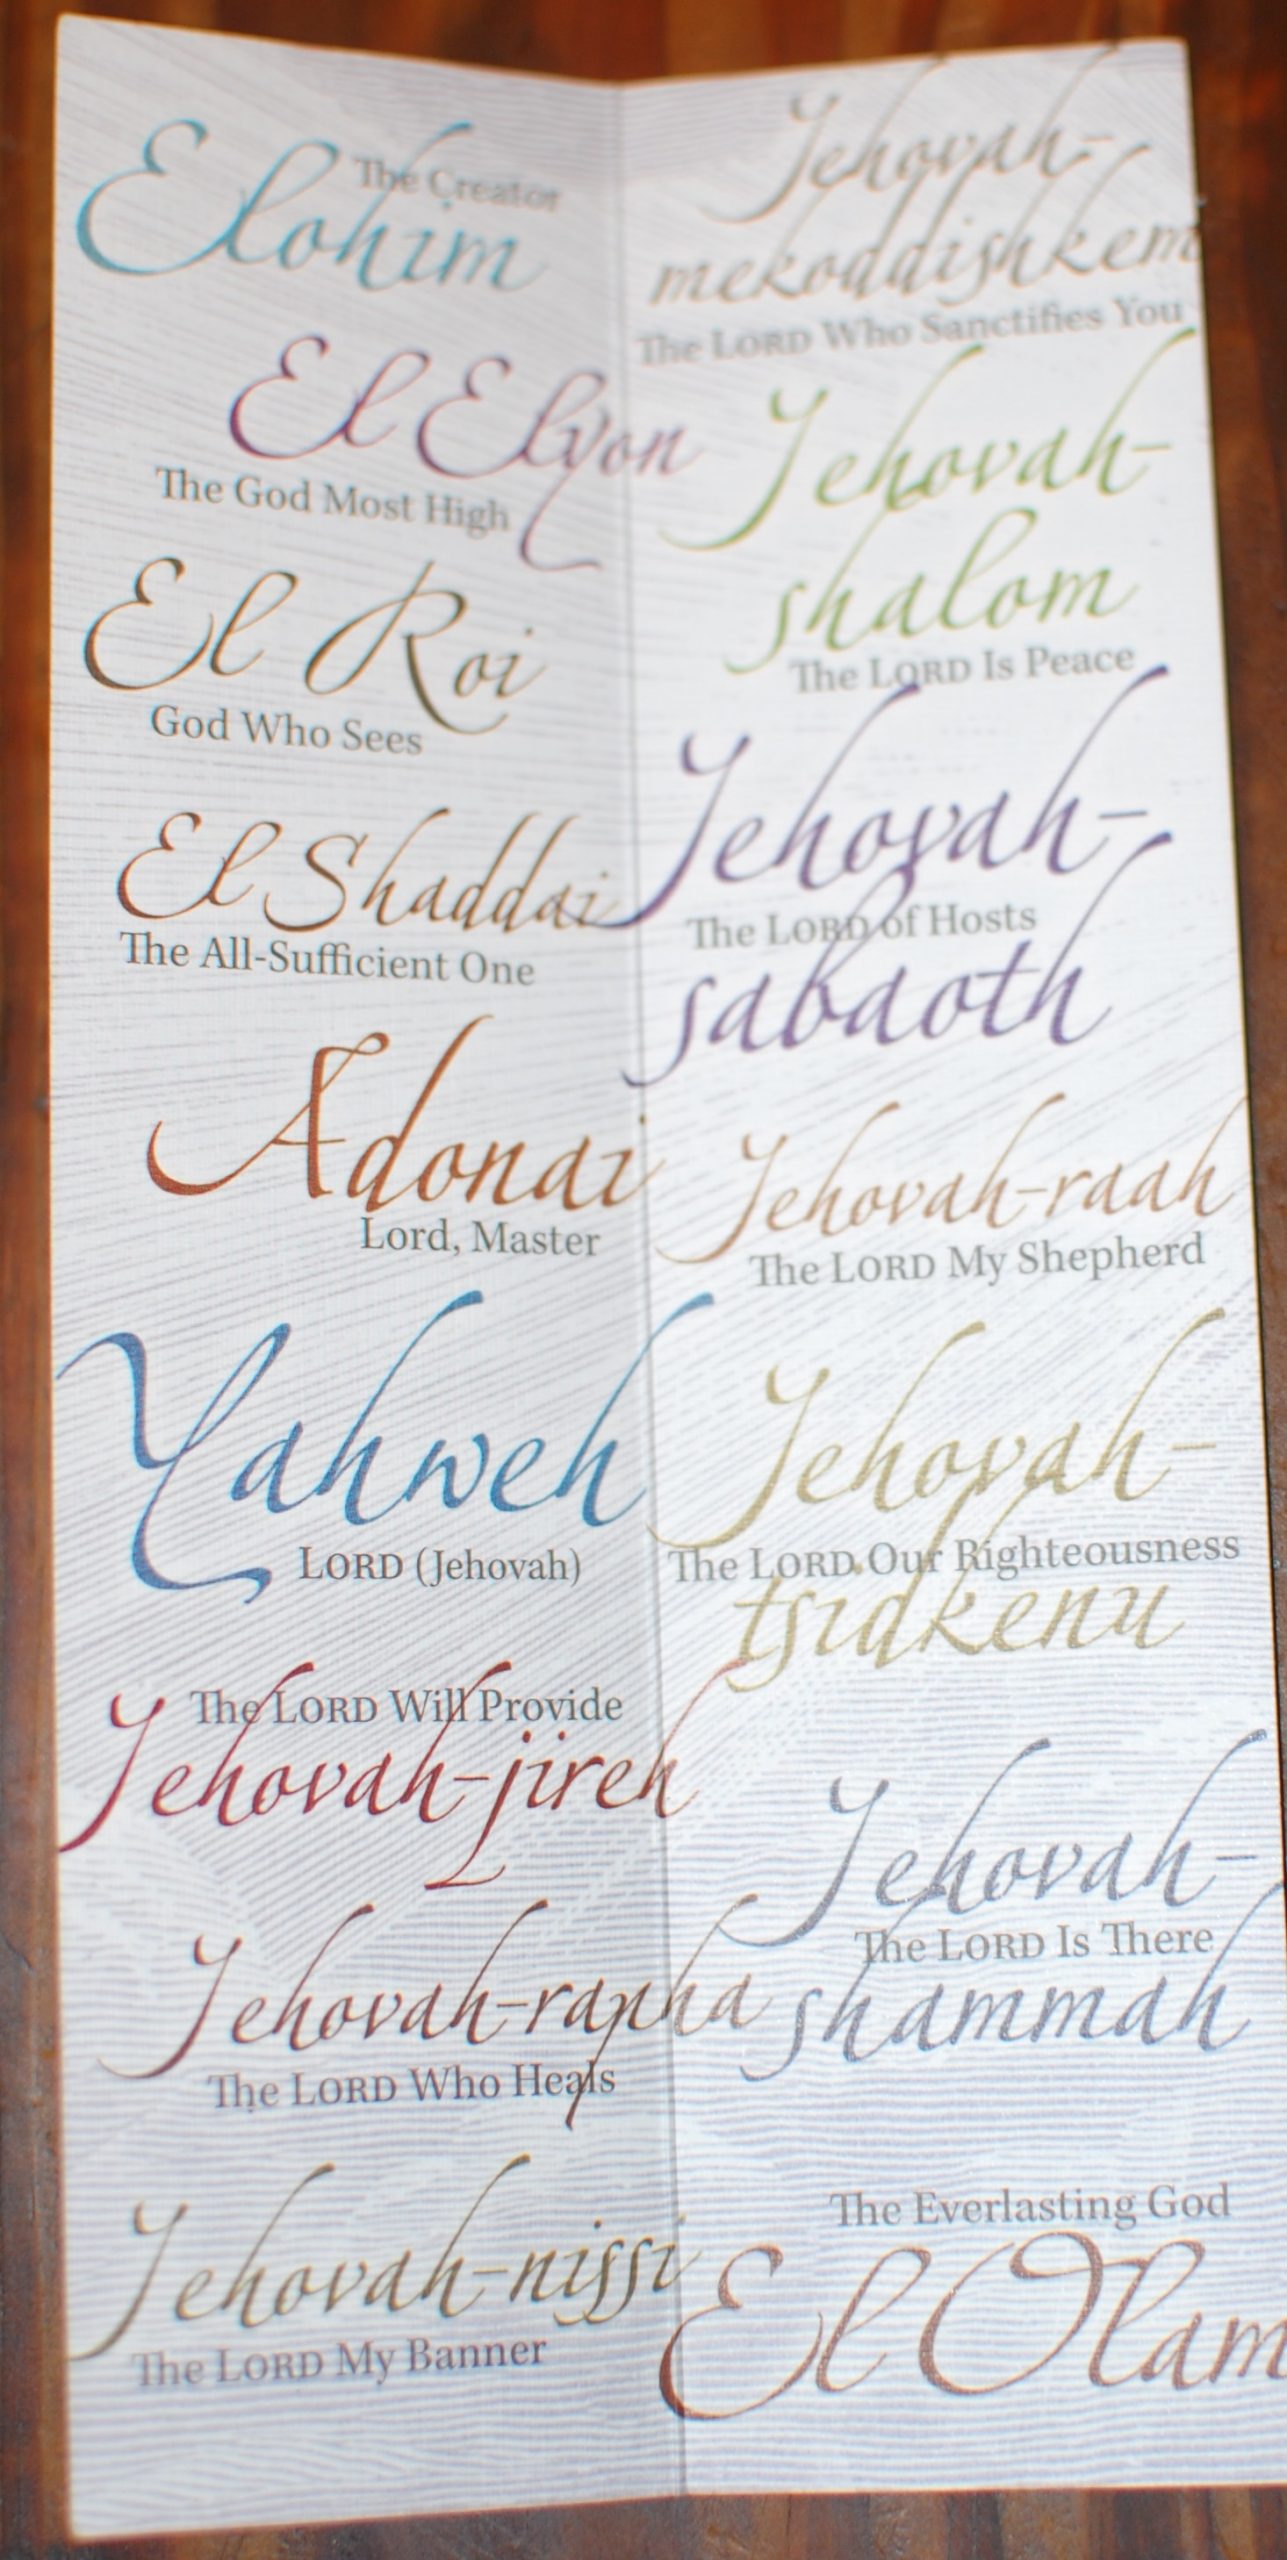 The Creator
Elohim
El Elyon
The God Most High
El Roi
God Who Sees
El Shaddai
The All-Sufficient One
Adonai
Lord, Master
Yahweh
LORD (Jehovah)
The LORD Will Provide
Jehovah-jireh
Jehovah-rapha
The LORD Who Heals
Jehovah-nissi
The LORD My Banner
Jehovah-
mekoddishkem
The LORD Who Sanctifies You
Jehovah-
shalom
The LORD Is Peace
Jehovah-
The LORD of Hosts
sabaoth
Jehovah-raah
The LORD My Shepherd
Jehovah-
The LORD Our Righteousness
tsidkenu
Jehovah-
The LORD Is There
shammah
The Everlasting God
El Olam